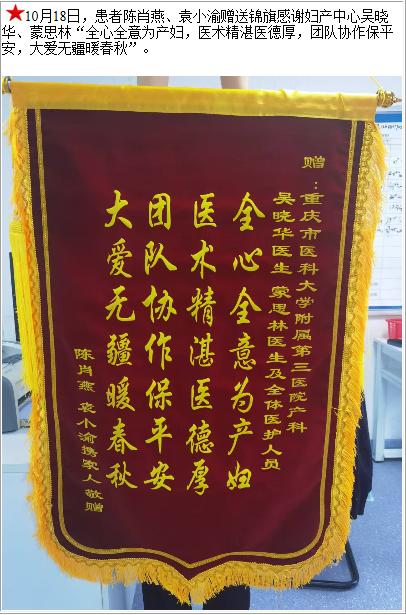 ★10月18日，患者陈肖燕、袁小渝赠送锦旗感谢妇产中心吴晓
华、蒙思林“全心全意为产妇，医术精湛医德厚，团队协作保平
安，大爱无疆暖春秋”。
赠：重庆市医科大学附属第三医院产科
吴晓华医生 蒙思林医生及全体医护人员
全心全意为产妇
医术精湛医德厚
团队协作保平安
大爱无疆暖春秋
陈肖燕 袁小渝携家人敬赠